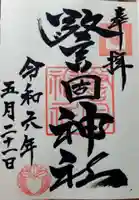 奉拝
警固神社
令和元年
五月二十日